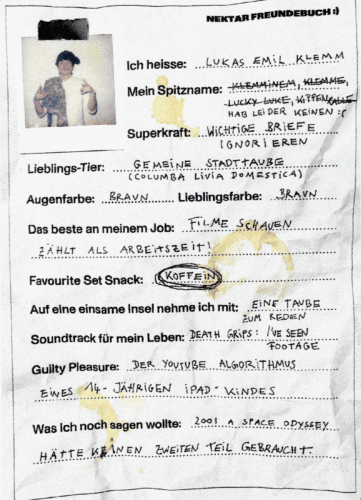 NEKTAR FREUNDEBUCH :)
Ich heisse: LUKAS EMIL KLEMM
Mein Spitzname: KLEMMINEM, KLEMME,
LUCKY LUKE, KIPPENKALLE
HAB LEIDER KEINEN :(
Superkraft: WICHTIGE BRIEFE
IGNORIEREN
Lieblings-Tier: GEMEINE STADTTAUBE
(COLUMBA LIVIA DOMESTICA)
Augenfarbe: BRAUN Lieblingsfarbe: BRAUN
Das beste an meinem Job: FILME SCHAUEN
ZÄHLT ALS ARBEITSZEIT!
Favourite Set Snack: KOFFEIN
Auf eine einsame Insel nehme ich mit: EINE TAUBE
ZUM REDEN
Soundtrack für mein Leben: DEATH GRIPS: I'VE SEEN
FOOTAGE
Guilty Pleasure: DER YOUTUBE ALGORITHMUS
EINES 14-JÄHRIGEN IPAD-KINDES
Was ich noch sagen wollte: 2001 A SPACE ODYSSEY
HÄTTE KEINEN ZWEITEN TEIL GEBRAUCHT.